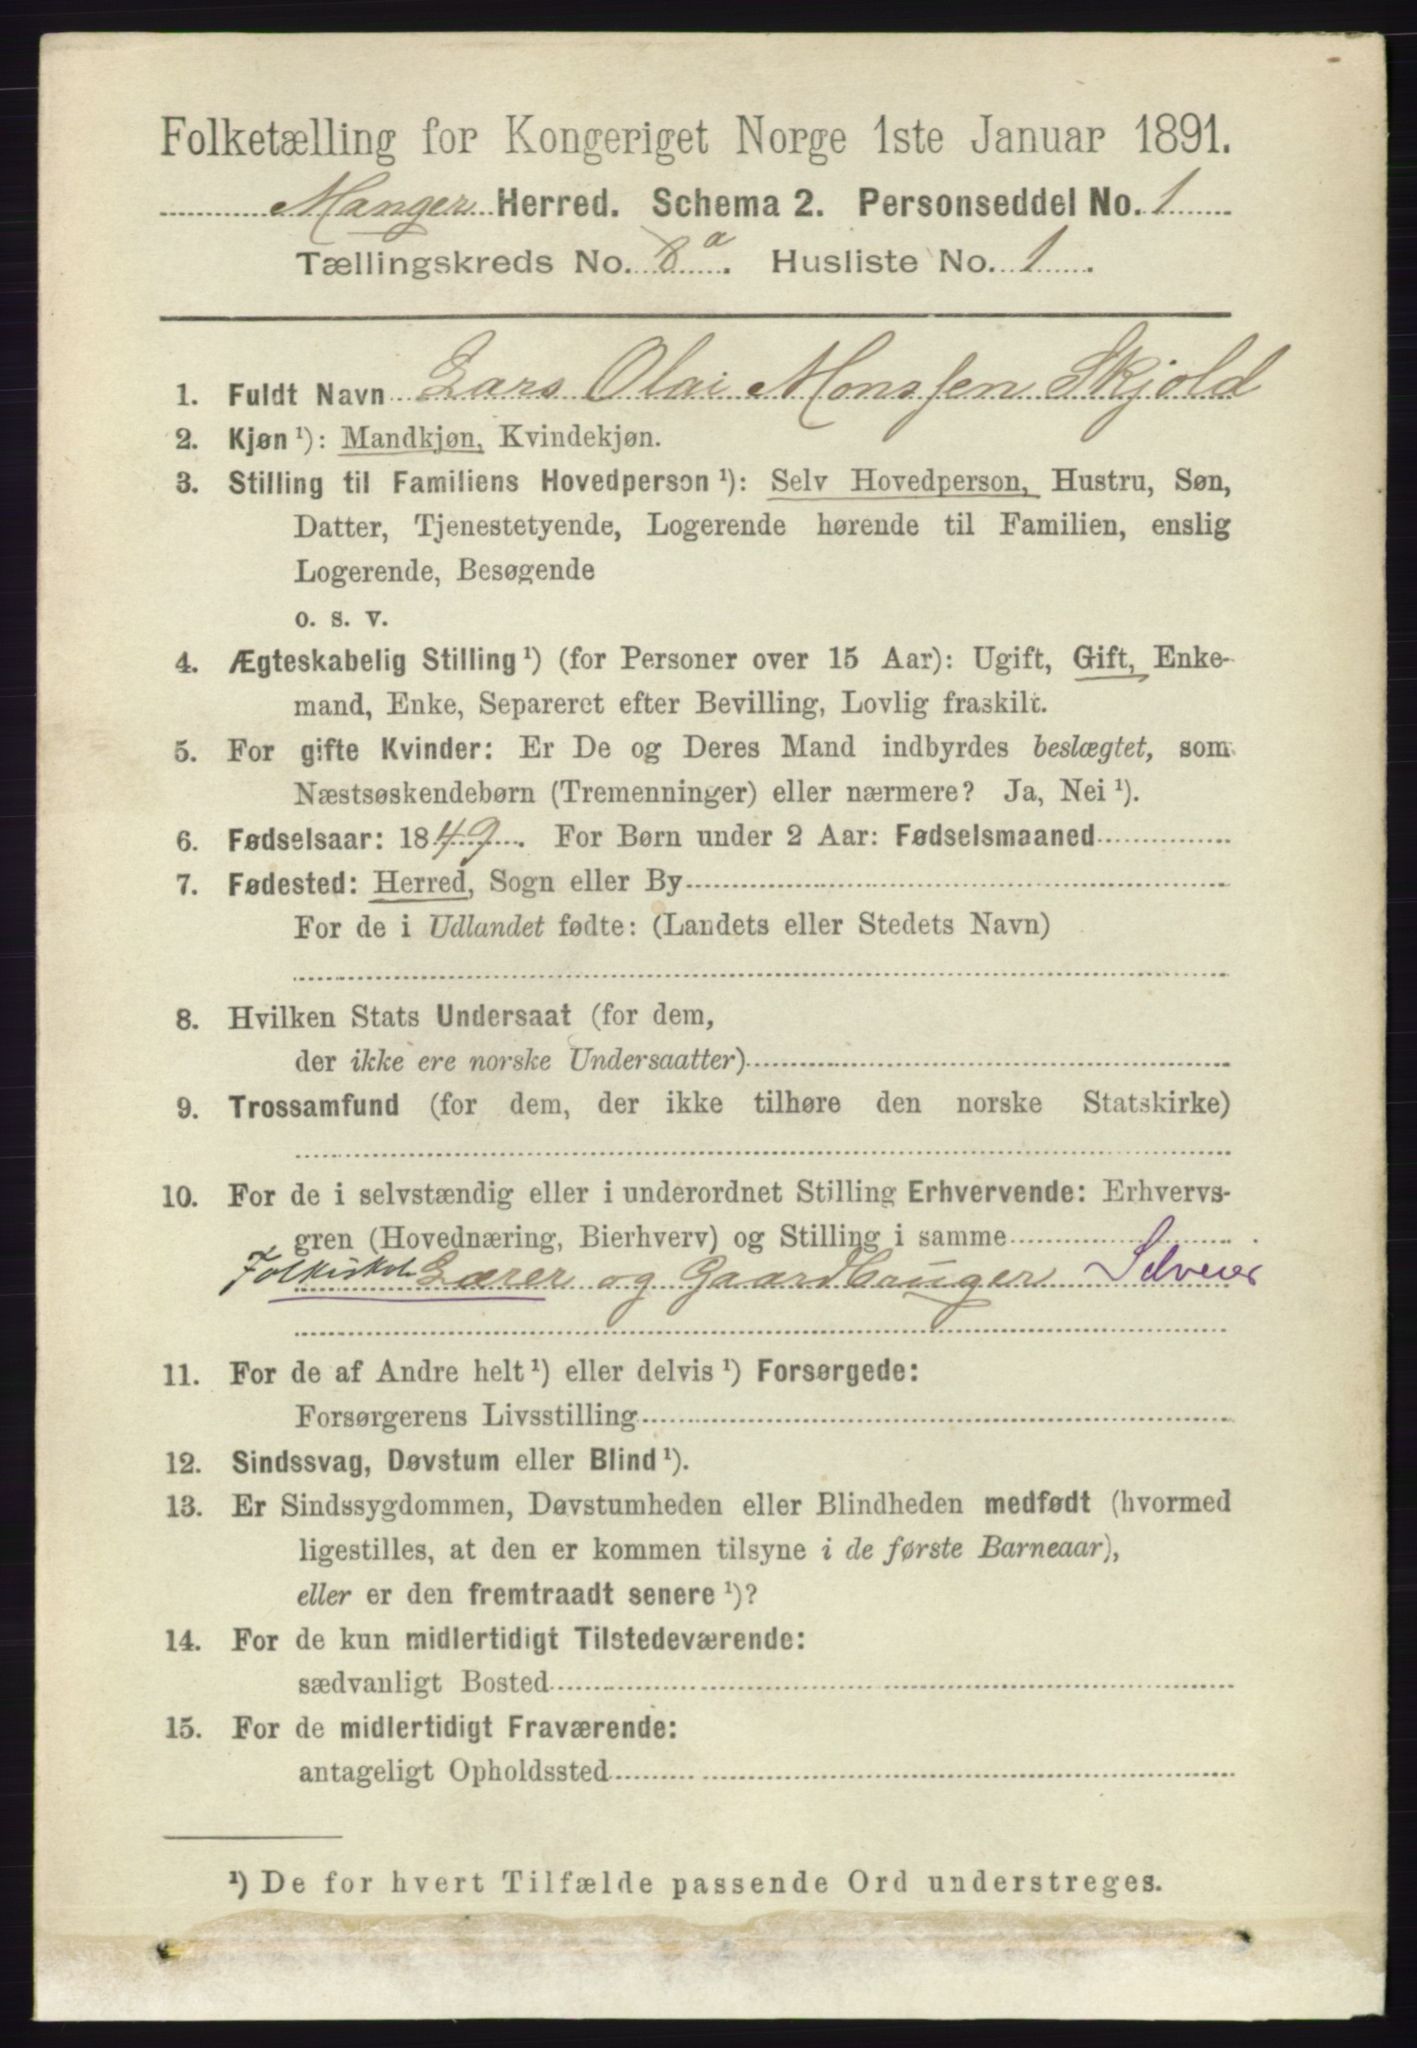 Folketælling for Kongeriget Norge 1ste Januar 1891.
Manger Herred. Schema 2. Personseddel No. 1
Tællingskreds No. 8a. Husliste No. 1.
1. Fuldt Navn Lars Olai Monssen Skjold
2. Kjøn ¹): Mandkjøn, Kvindekjøn.
3. Stilling til Familiens Hovedperson ¹): Selv Hovedperson, Hustru, Søn,
Datter, Tjenestetyende, Logerende hørende til Familien, enslig
Logerende, Besøgende
o. s. v.
4. Ægteskabelig Stilling ¹) (for Personer over 15 Aar): Ugift, Gift, Enke-
mand, Enke, Separeret efter Bevilling, Lovlig fraskilt.
5. For gifte Kvinder: Er De og Deres Mand indbyrdes beslægtet, som
Næstsøskendebørn (Tremenninger) eller nærmere? Ja, Nei ¹).
6. Fødselsaar: 1849. For Børn under 2 Aar: Fødselsmaaned
7. Fødested: Herred, Sogn eller By
For de i Udlandet fødte: (Landets eller Stedets Navn)
8. Hvilken Stats Undersaat (for dem,
der ikke ere norske Undersaatter)
9. Trossamfund (for dem, der ikke tilhøre den norske Statskirke)
10. For de i selvstændig eller i underordnet Stilling Erhvervende: Erhvervs-
gren (Hovednæring, Bierhverv) og Stilling i samme
Folkeskole Lærer og Gaardbruger Selveier
11. For de af Andre helt ¹) eller delvis ¹) Forsørgede:
Forsørgerens Livsstilling
12. Sindssvag, Døvstum eller Blind ¹).
13. Er Sindssygdommen, Døvstumheden eller Blindheden medfødt (hvormed
ligestilles, at den er kommen tilsyne i de første Barneaar),
eller er den fremtraadt senere ¹)?
14. For de kun midlertidigt Tilstedeværende:
sædvanligt Bosted
15. For de midlertidigt Fraværende:
antageligt Opholdssted
¹) De for hvert Tilfælde passende Ord understreges.